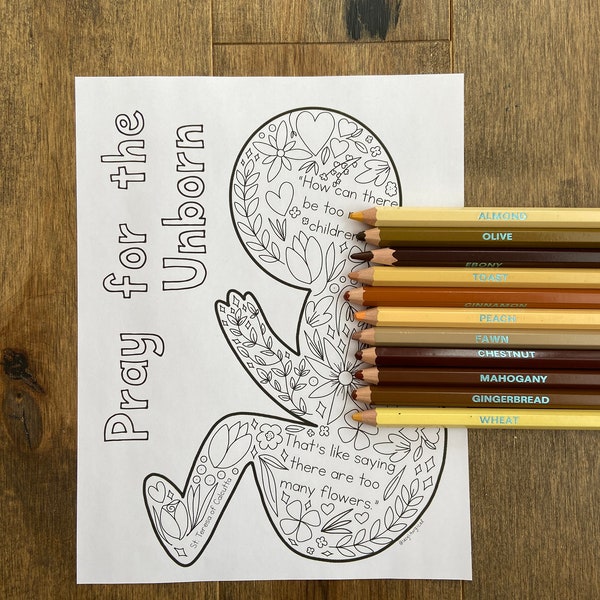 Pray for the
Unborn
"How can there
be too
children
That's like saying
there are too
many flowers."
St. Teresa of Calcutta
ALMOND
OLIVE
EBONY
TOAST
CINNAMON
PEACH
FAWN
CHESTNUT
MAHOGANY
GINGERBREAD
WHEAT